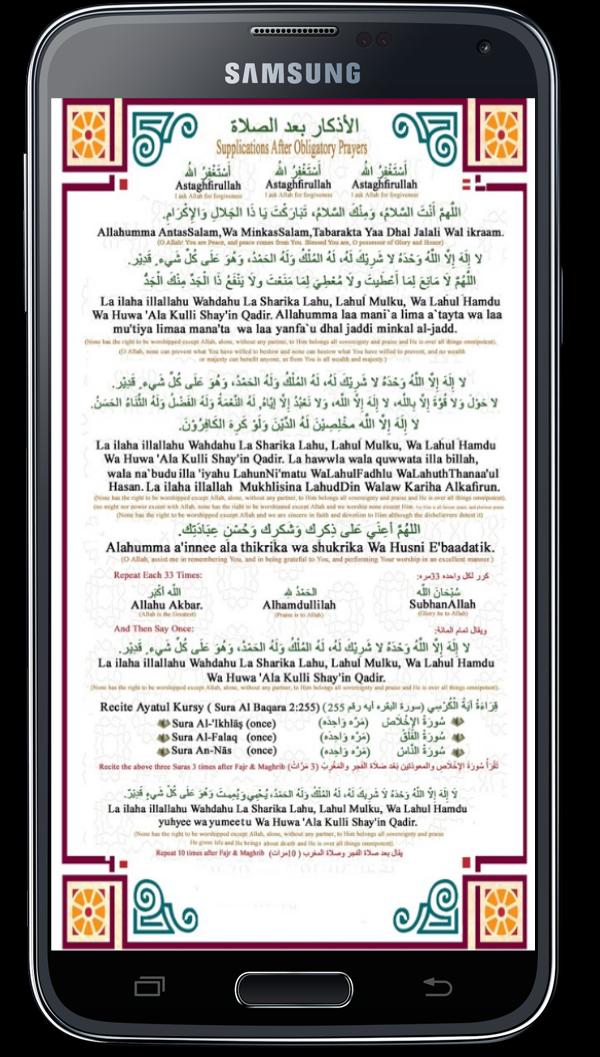 SAMSUNG
الأذكار بعد الصلاة
Supplications After Obligatory Prayers
أَسْتَغْفِرُ الله أَسْتَغْفِرُ الله أَسْتَغْفِرُ الله
Astaghfirullah Astaghfirullah Astaghfirullah
I ask Allah for forgiveness I ask Allah for forgiveness I ask Allah for forgiveness
اللَّهُمَّ أَنْتَ السَّلامُ، وَمِنْكَ السَّلامُ، تَبَارَكْتَ يَا ذَا الجَلالِ وَالإِكْرَامِ.
Allahumma AntasSalam,Wa MinkasSalam,Tabarakta Yaa Dhal Jalali Wal ikraam.
(O Allah! You are Peace, and peace comes from You. Blessed You are, O possessor of Glory and Honor)
لا إِلَهَ إِلاَّ اللَّهُ وَحْدَهُ لا شَرِيْكَ لَهُ، لَهُ المُلْكُ وَلَهُ الحَمْدُ، وَهُوَ عَلَى كُلِّ شَيءٍ قَدِيْر.
اللَّهُمَّ لا مَانِعَ لِمَا أَعْطَيتَ وَلا مُعْطِيَ لِمَا مَنَعْتَ وَلا يَنْفَعُ ذَا الْجَدِّ مِنْكَ الْجَدُّ
La ilaha illallahu Wahdahu La Sharika Lahu, Lahul Mulku, Wa Lahul Hamdu
Wa Huwa 'Ala Kulli Shay'in Qadir. Allahumma laa mani`a lima a`tayta wa laa
mu'tiya limaa mana'ta wa laa yanfa`u dhal jaddi minkal al-jadd.
(None has the right to be worshipped except Allah, alone, without any partner, to Him belongs all sovereignty and praise and He is over all things omnipotent).
(O Allah, none can prevent what You have willed to bestow and none can bestow what You have willed to prevent, and no wealth
or majesty can benefit anyone, as from You is all wealth and majesty.)
لا إِلَهَ إِلاَّ اللَّهُ وَحْدَهُ لا شَرِيْكَ لَهُ، لَهُ المُلْكُ وَلَهُ الحَمْدُ، وَهُوَ عَلَى كُلِّ شَيءٍ قَدِيْر.
لا حَوْلَ وَلا قُوَّةَ إِلاَّ بِاللَّه، لا إِلَهَ إِلاَّ اللَّه، وَلا نَعْبُدُ إِلاَّ إِيَّاهُ، لَهُ النِّعْمَةُ وَلَهُ الْفَضْلُ وَلَهُ الثَّنَاءُ الحَسَنُ.
لا إِلَهَ إِلاَّ اللَّه مخْلِصِيْنَ لَهُ الدِّيْنَ وَلَوْ كَرِهَ الكَافِرُوْنَ.
La ilaha illallahu Wahdahu La Sharika Lahu, Lahul Mulku, Wa Lahul Hamdu
Wa Huwa 'Ala Kulli Shay'in Qadir. La hawwla wala quwwata illa billah,
wala na`budu illa 'iyahu LahunNi'matu WaLahulFadhlu WaLahuthThanaa'ul
Hasan. La ilaha illallah Mukhlisina LahudDin Walaw Kariha Alkafirun.
(None has the right to be worshipped except Allah, alone, without any partner, to Him belongs all sovereignty and praise and He is over all things omnipotent).
(no might nor power except with Allah, none has the right to be worshipped except Allah and we worship none except Him.
(None has the right to be worshipped except Allah and we are sincere in faith and devotion to Him although the disbelievers detest it)
اللهُمَّ أَعِنِّي عَلَى ذِكرِكَ وَشُكرِكَ وَحُسْنِ عِبَادَتِكَ.
Alahumma a'innee ala thikrika wa shukrika Wa Husni E'baadatik.
(O Allah, assist me in remembering You, and in being grateful to You, and performing Your worship in an excellent manner)
Repeat Each 33 Times: كرر لكل واحده 33مره:
الله أكْبَر الحَمْدُ لله سُبْحَانَ الله
Allahu Akbar. Alhamdullilah SubhanAllah
(Allah is the Greatest) (Praise is to Allah) (Glory be to Allah)
And Then Say Once: ويقال تمام المائة:
لا إِلَهَ إِلاَّ اللَّهُ وَحْدَهُ لا شَرِيْكَ لَهُ، لَهُ المُلْكُ وَلَهُ الحَمْدُ، وَهُوَ عَلَى كُلِّ شَيءٍ قَدِيْر.
La ilaha illallahu Wahdahu La Sharika Lahu, Lahul Mulku, Wa Lahul Hamdu
Wa Huwa 'Ala Kulli Shay'in Qadir.
(None has the right to be worshipped except Allah, alone, without any partner, to Him belongs all sovereignty and praise and He is over all things omnipotent).
Recite Ayatul Kursy ( Sura Al Baqara 2:255) قِرَاءَةُ آيَةُ الْكُرْسِي (سورة البقره آيه رقم 255)
Sura Al-'Ikhlāṣ (once) (مَرَّه وَاحِده) سُورَةُ الإِخْلَاصِ
Sura Al-Falaq (once) (مَرَّه وَاحِده) سُورَةُ الْفَلَقِ
Sura An-Nās (once) (مَرَّه وَاحِده) سُورَةُ النَّاسْ
Recite the above three Suras 3 times after Fajr & Maghrib تَقْرَأُ سُورَةُ الإِخْلَاصِ والمعوذتين بَعْد صَلاةَ الفَجر والمَغْرِبْ (3 مَرَّاتْ)
لا إِلَهَ إِلاَّ اللَّهُ وَحْدَهُ لا شَرِيكَ لَهُ، لَهُ المُلْكُ وَلَهُ الحَمْدُ، يُحْيِي وَيُمِيتُ وَهُوَ عَلَى كُلِّ شَيءٍ قَدِيْر.
La ilaha illallahu Wahdahu La Sharika Lahu, Lahul Mulku, Wa Lahul Hamdu
yuhyee wa yumeetu Wa Huwa 'Ala Kulli Shay'in Qadir.
(None has the right to be worshipped except Allah, alone, without any partner, to Him belongs all sovereignty and praise
He gives life and He brings about death and He is over all things omnipotent).
Repeat 10 times after Fajr & Maghrib يقال بعد صلاة الفجر وصلاة المغرب (10مرات)